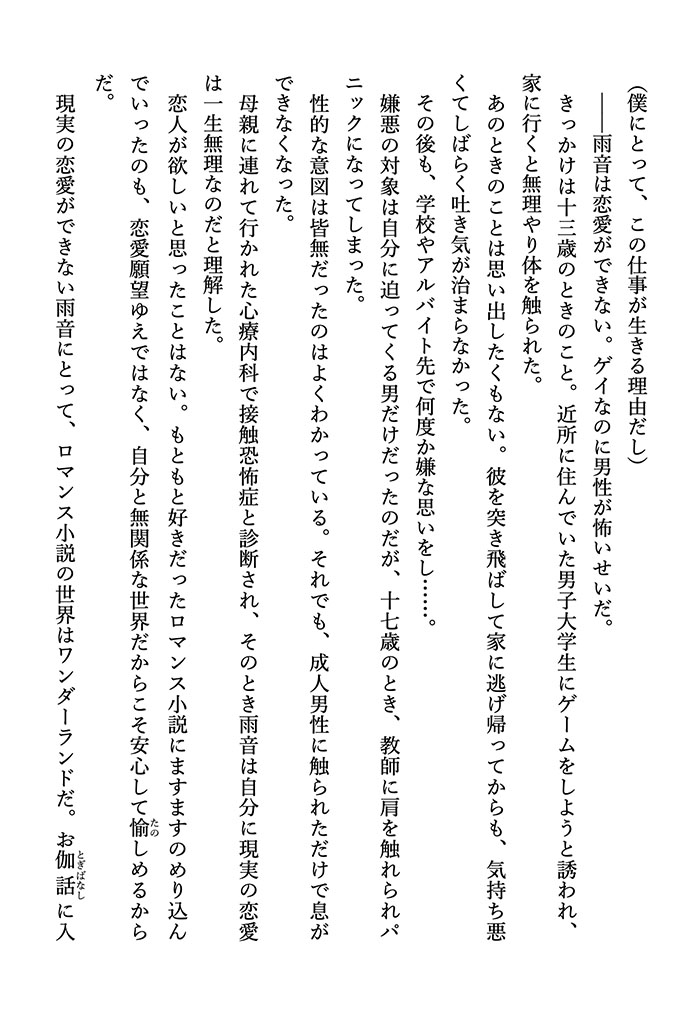 （僕にとって、この仕事が生きる理由だし）
――雨音は恋愛ができない。ゲイなのに男性が怖いせいだ。
きっかけは十三歳のときのこと。近所に住んでいた男子大学生にゲームをしようと誘われ、
家に行くと無理やり体を触られた。
あのときのことは思い出したくもない。彼を突き飛ばして家に逃げ帰ってからも、気持ち悪
くてしばらく吐き気が治まらなかった。
その後も、学校やアルバイト先で何度か嫌な思いをし……。
嫌悪の対象は自分に迫ってくる男だけだったのだが、十七歳のとき、教師に肩を触れられパ
ニックになってしまった。
性的な意図は皆無だったのはよくわかっている。それでも、成人男性に触られただけで息が
できなくなった。
母親に連れて行かれた心療内科で接触恐怖症と診断され、そのとき雨音は自分に現実の恋愛
は一生無理なのだと理解した。
恋人が欲しいと思ったことはない。もともと好きだったロマンス小説にますますのめり込ん
でいったのも、恋愛願望ゆえではなく、自分と無関係な世界だからこそ安心して愉たのしめるから
だ。
現実の恋愛ができない雨音にとって、ロマンス小説の世界はワンダーランドだ。お伽話とぎばなしに入